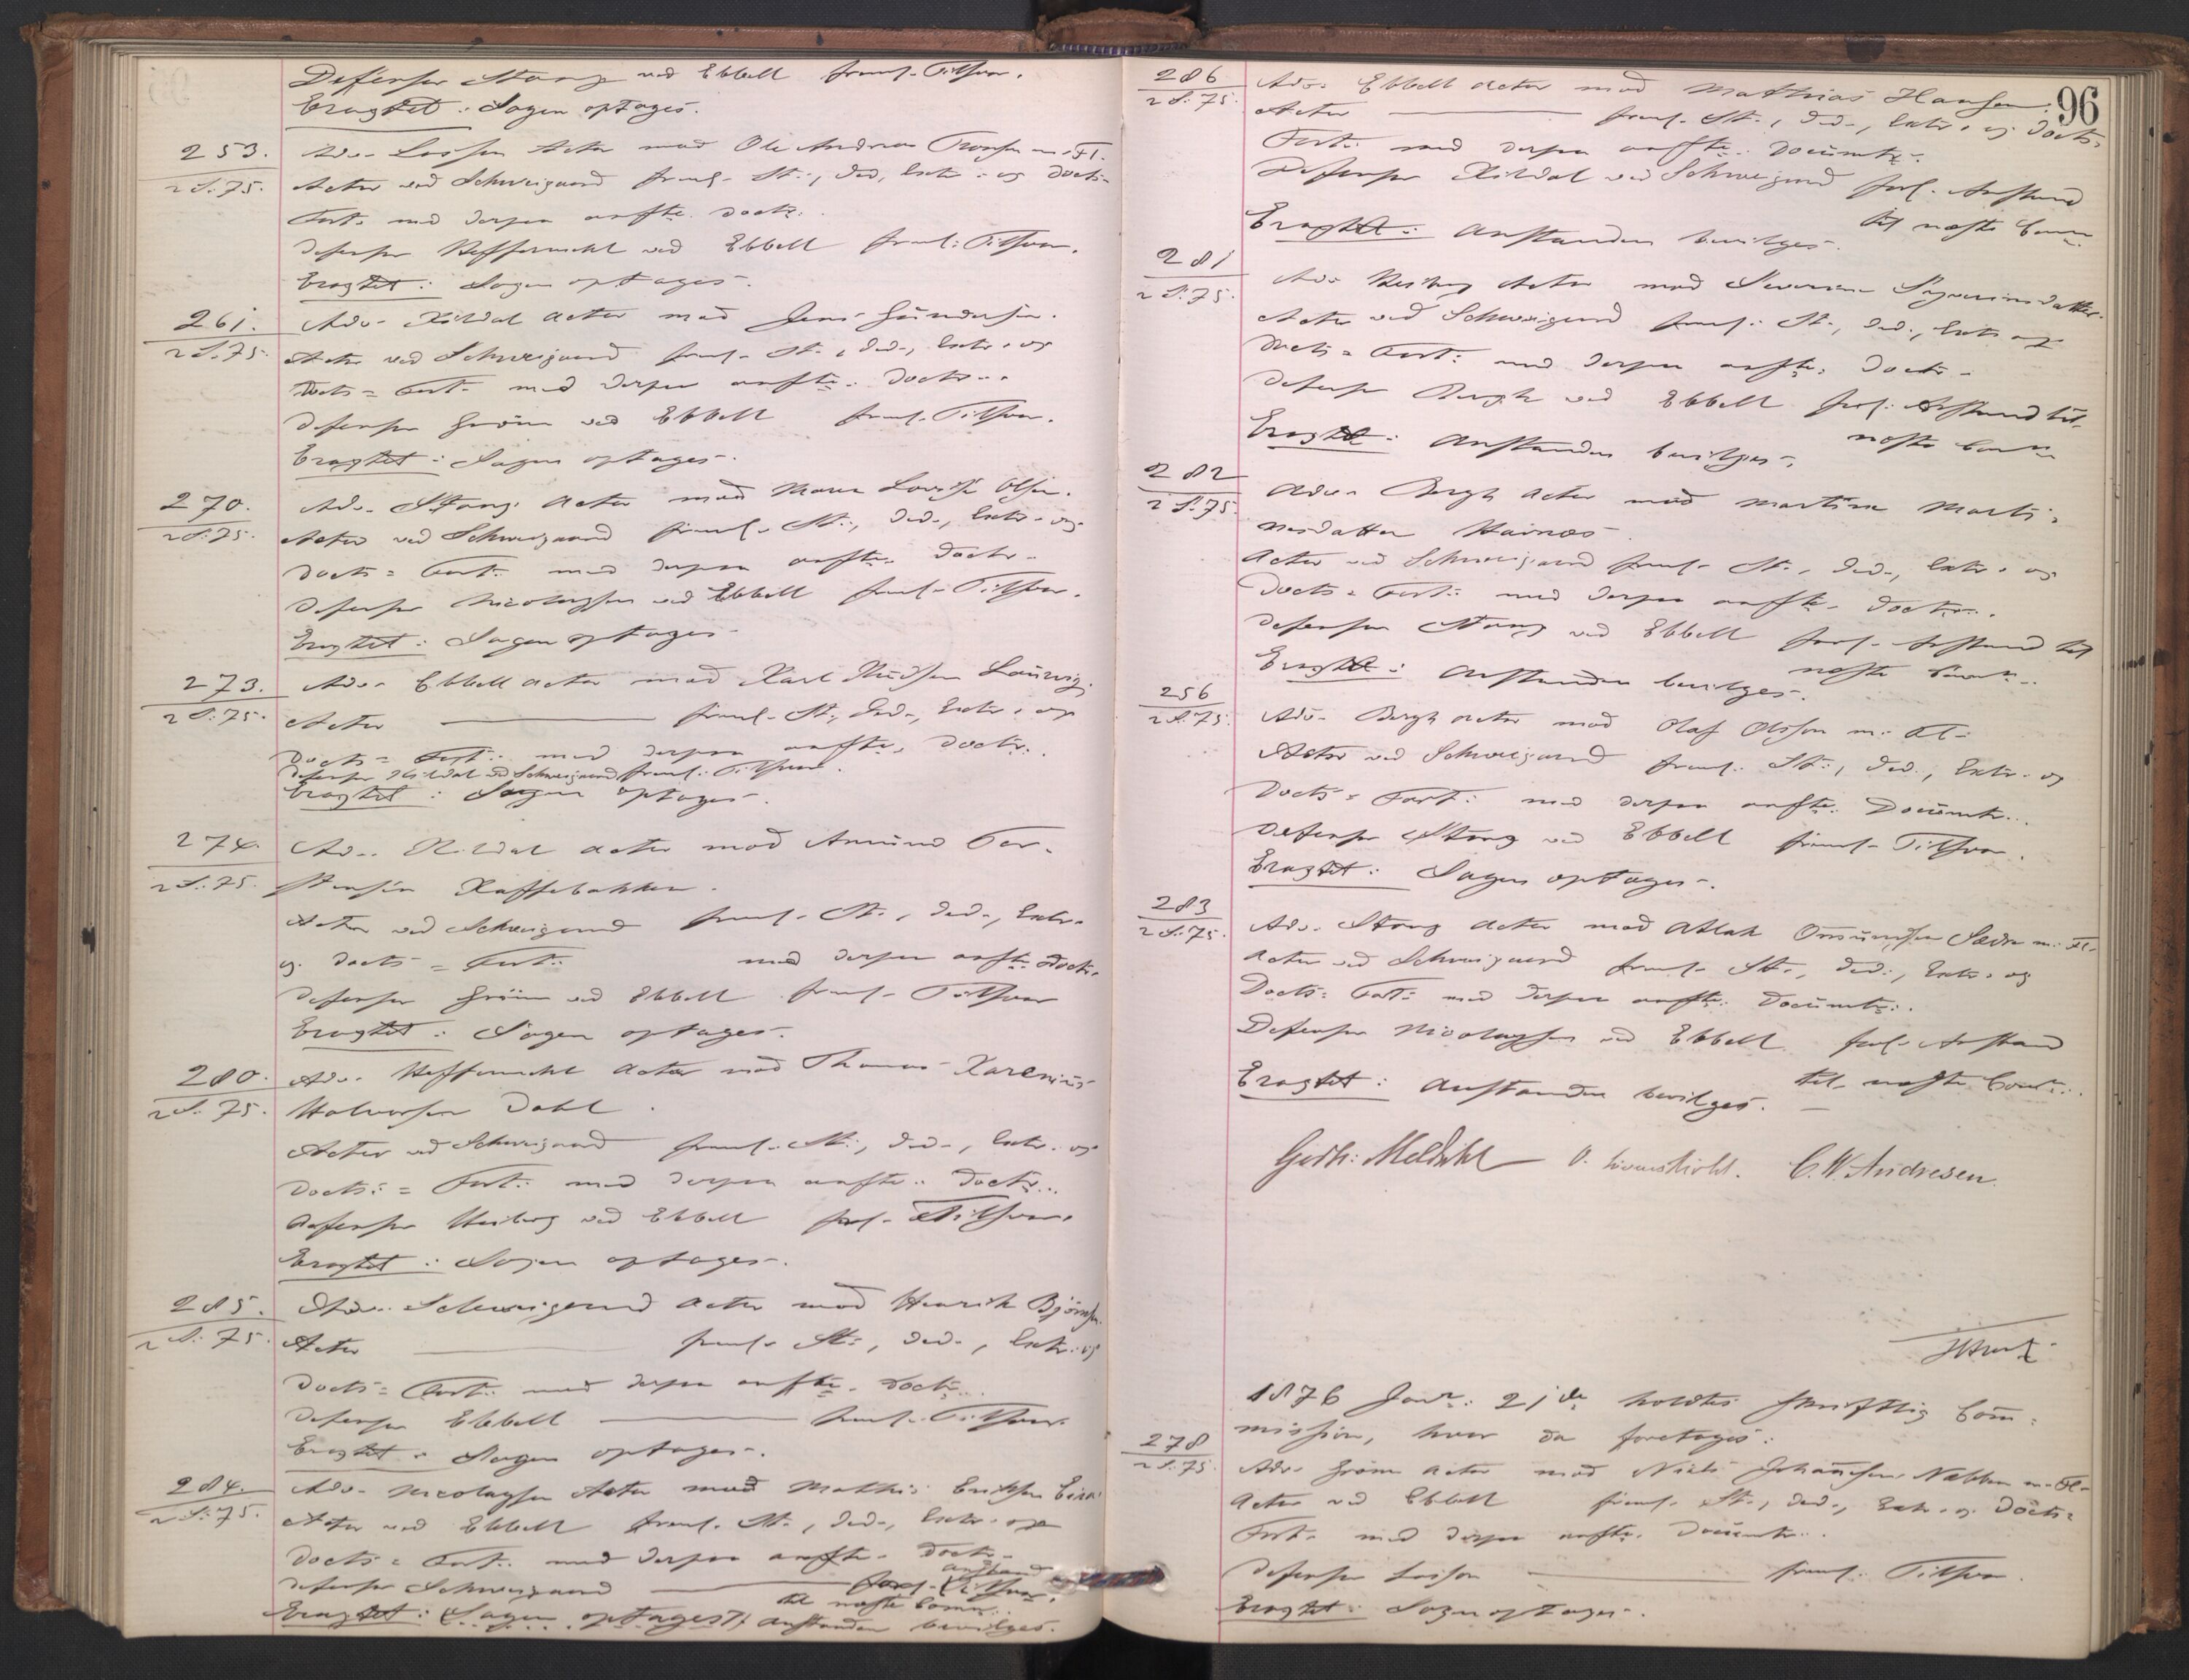 Defensor Stang ved Ebbell freml. Tilsvar.
Eragtet: Sagen optages.
253.
2 S. 75.
Adv. Lassen Actor mod Ole Andreas Tronsen m. Fl.
Actor ved Schweigaard freml. St., Ded., Extr. og Docts-
Fort. med derpaa anfte. Doctr.
Defensor Heffermehl ved Ebbell freml. Tilsvar.
Eragtet: Sagen optages.
261.
2 S. 75.
Adv. Kildal Actor mod Jens Gundersen.
Actor ved Schweigaard freml. St., Ded., Extr. og
Docts = Fort. med derpaa anfte. Doctr.
Defensor Gröm ved Ebbell freml. Tilsvar.
Eragtet: Sagen optages.
270.
2 S. 75.
Adv. Stang Actor mod Maren Lovise Olsen.
Actor ved Schweigaard freml. St., Ded., Extr. og
Docts = Fort. med derpaa anfte. Doctr.
Defensor Nicolaysen ved Ebbell freml. Tilsvar.
Eragtet: Sagen optages
273.
2 S. 75.
Adv. Ebbell Actor mod Karl Knudsen Laurvig.
Actor — freml. St., Ded., Extr. og
Docts = Fort. med derpaa anfte. Doctr.
Defensor Kildal ved Schweigaard freml. Tilsvar.
Eragtet: Sagen optages.
274.
2 S. 75.
Adv. Kildal Actor mod Amund Tor-
stensen Kaffebakken.
Actor ved Schweigaard freml. St., Ded., Extr.
og Docts = Fort. med derpaa anfte Doctr.
Defensor Gröm ved Ebbell freml. Tilsvar
Eragtet: Sagen optages.
280.
2 S. 75.
Adv. Heffermehl Actor mod Thomas Karenius
Halvorsen Dahl.
Actor ved Schweigaard freml. St., Ded., Extr. og
Docts = Fort. med derpaa anfte. Doctr.
Defensor Heiberg ved Ebbell freml. Tilsvar.
Eragtet: Sagen optages.
285.
2 S. 75.
Adv. Schweigaard Actor mod Henrik Björnsen.
Actor — freml. St., Ded., Extr. og
Docts = Fort. med derpaa anfte. Doctr.
Defensor Ebbell — freml. Tilsvar.
Eragtet: Sagen optages.
284.
2 S. 75.
Adv. Nicolaysen Actor mod Mathis Eriksen
Actor ved Ebbell freml. St., Ded., Extr. og
Docts = Fort. med derpaa anfte. Doctr.
Anstand
Defensor Schweigaard — forl. (Tilsvar.
til næste Comm.
Eragtet: (Sagen optages) Anstanden bevilges.
96
286
2 S. 75.
Adv. Ebbell Actor mod Mathias Hansen.
Actor — freml. St., Ded., Extr. og Docts-
Fort. med derpaa anfte. Documtr.
Defensor Kildal ved Schweigaard forl. Anstand
til næste Comm.
Eragtet: Anstanden bevilges.
281
2 S. 75.
Adv. Heiberg Actor mod Severine Syverinsdatter.
Actor ved Schweigaard freml. St., Ded., Extr. og
Docts = Fort. med derpaa anfte. Doctr.
Defensor Bergh ved Ebbell forl. Anstand til
næste Comm
Eragtet: Anstanden bevilges.
282
2 S. 75.
Adv. Bergh Actor mod Martine Marti-
nusdatter
Actor ved Schweigaard freml. St., Ded., Extr. og
Docts = Fort. med derpaa anfte. Doctr.
Defensor Stang ved Ebbell forl. Anstand til
næste Comm.
Eragtet: Anstanden bevilges.
256
2 S. 75.
Adv. Bergh Actor mod Olaf Olsson m. Fl.
Actor ved Schweigaard freml. St., Ded., Extr. og
Docts = Fort. med derpaa anfte. Documtr.
Defensor Stang ved Ebbell freml. Tilsvar.
Eragtet: Sagen optages.
283
2 S. 75.
Adv. Stang Actor mod Atlak Omundsen m. Fl.
Actor ved Schweigaard freml. St., Ded., Extr. og
Docts = Fort. med derpaa anfte. Documtr.
Defensor Nicolaysen ved Ebbell forl. Anstand
til næste Comm.
Eragtet: Anstanden bevilges.
Gerh: Meldahl O. Lövenskiold. C. W. Andresen.
1876 Janr. 21de holdtes skriftlig Com-
mission, hvor da foretoges:
278
2 S. 75.
Adv. Gröm Actor mod Niels Johannesen Nabben m. Fl.
Actor ved Ebbell freml. St., Ded., Extr. og Docts-
Fort. med derpaa anfte. Documtr.
Defensor Lasson — freml. Tilsvar.
Eragtet: Sagen optages.